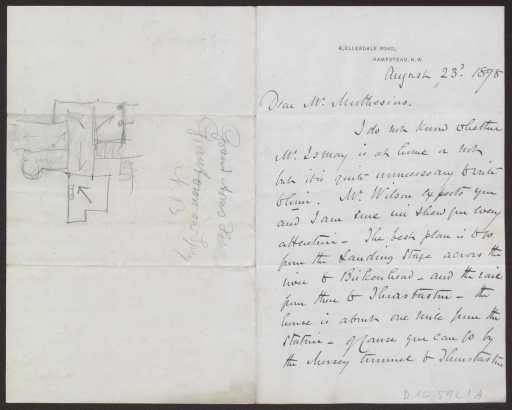 6, ELLERDALE ROAD,
HAMPSTEAD, N.W.
August 23? 1898
Dear Mr. Muthesius.
I do not know whether
Mr. Ismay is at home or not
but it is quite unnecessary to write
to him. Mr. Wilson expects you
and I am sure will show you every
attention - The best plan is to go
from the Landing Stage across the
river to Birkenhead - and the rail
from there to Thurstaston - the
house is about one mile from the
station - of course you can go by
the Mersey tunnel to Thurstaston